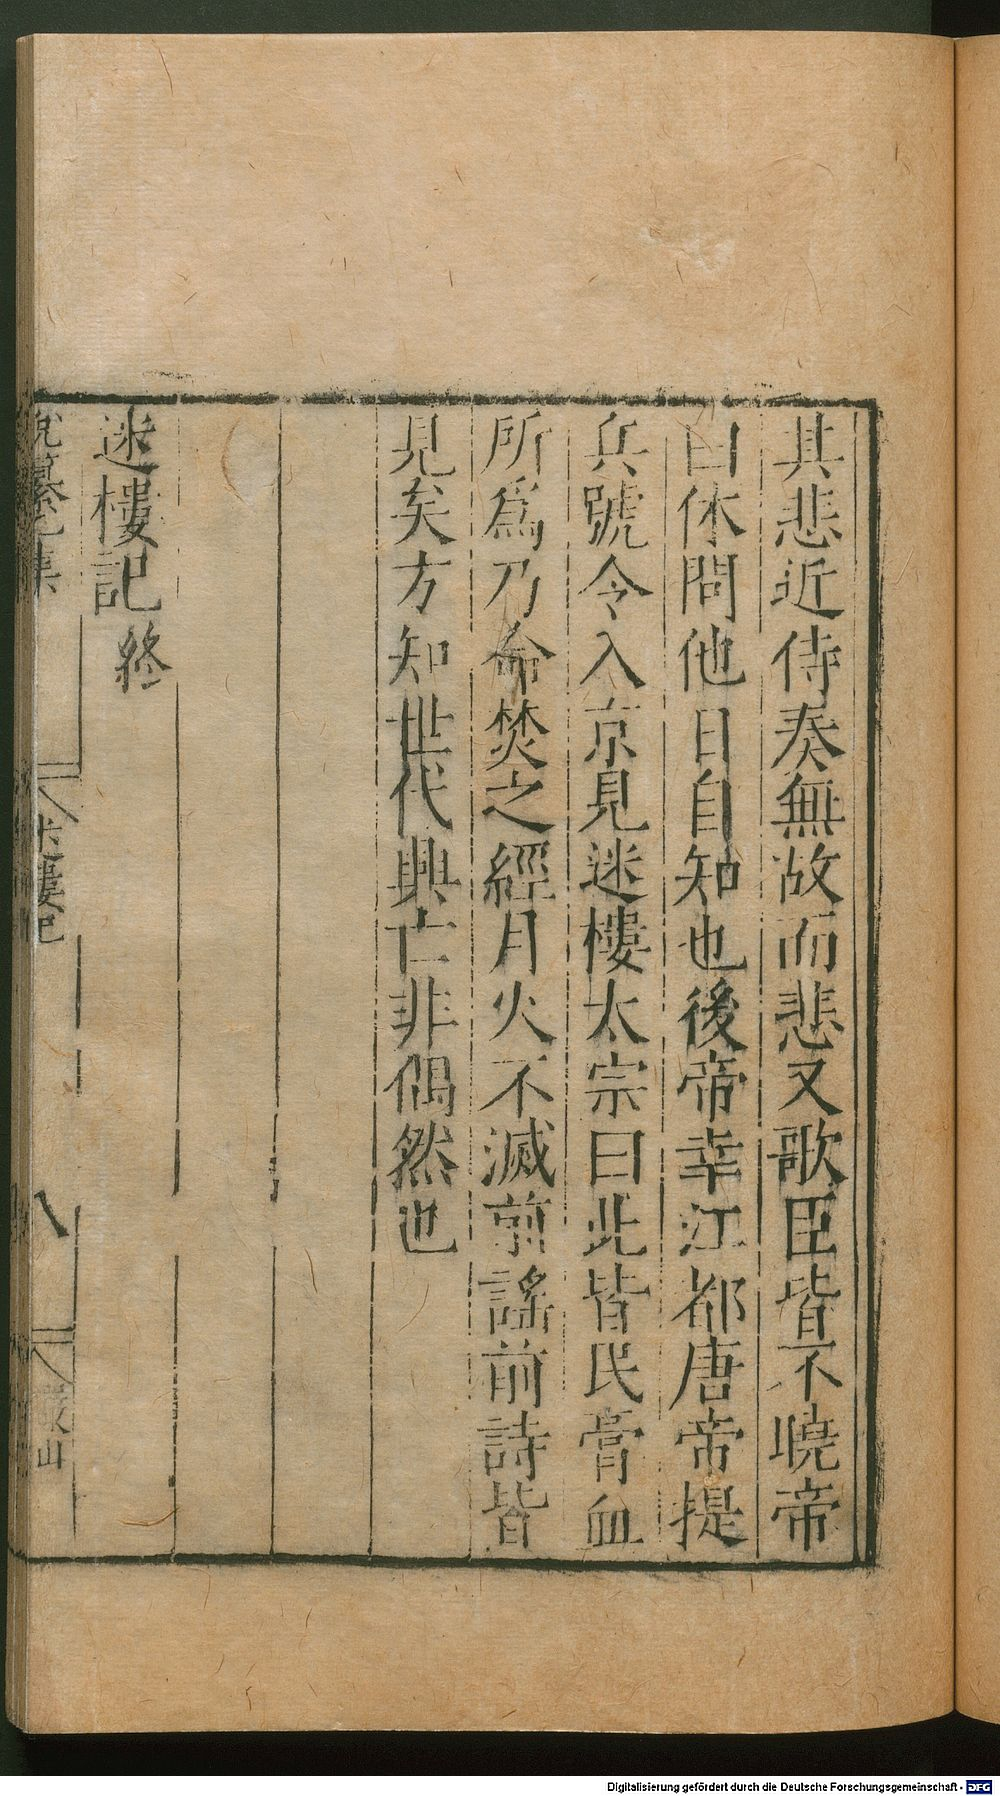 其悲近侍奏無故而悲又歌臣皆不曉帝
曰休問他日自知也後帝幸江都唐帝提
兵號令入京見迷樓太宗曰此皆民膏血
所爲乃命焚之經月火不滅前謠前詩皆
見矣方知世代興亡非偶然也
迷樓記 終
說纂己集
迷樓記
八
山
Digitalisierung gefördert durch die Deutsche Forschungsgemeinschaft - DFG